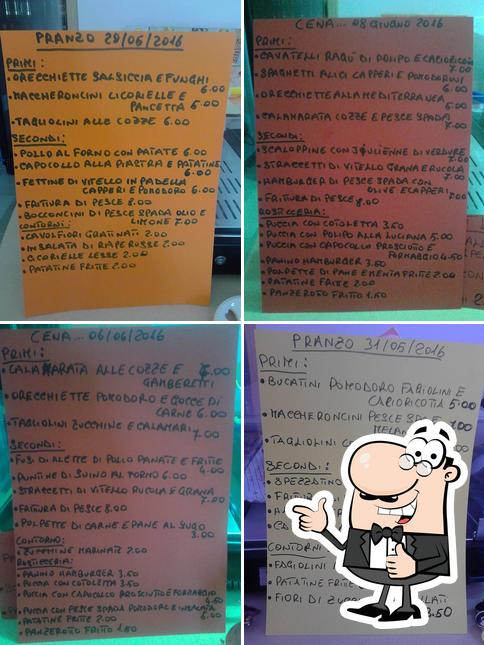 PRANZO 28/05/2016
PRIMI:
• ORECCHIETTE SALSICCIA E FUNGHI
6.00
• MACCHERONCINI LICORIELLE E
PANCETTA 6.00
• TAGLIOLINI ALLE COZZE 6.00
SECONDI:
• POLLO AL FORNO CON PATATE 6.00
• CAPOCOLLO ALLA PIASTRA E PATATINE
6.00
• FETTINE DI VITELLO IN PADELLA
CAPPERI E POMODORO 6.00
• FRITURA DI PESCE 8.00
• BOCCONCINI DI PESCE SPADA OLIO E
LIMONE 7.00
CONTORNI:
• CAVOLFIORI GRATINATI 2.00
• INSALATA DI RAPE ROSSE 2.00
• CICORIELLE LESSE 2.00
• PATATINE FRITTE 2.00
CENA... 08 GIUGNO 2016
PRIMI:
• CAVATELLI RAGÙ DI POLIPO E CACIORICOTTA
7.00
• SPAGHETTI ALICI CAPPERI E POMODORINI
6.00
• ORECCHIETTE ALLA MEDITERRANEA
6.00
• CALAMARATA COZZE E PESCE SPADA
7.00
SECONDI:
• SCALOPPINE CON JOULIENNE DI VERDURE
7.00
• STRACCETTI DI VITELLO GRANA E RUCOLA
7.00
• HAMBURGER DI PESCE SPADA CON
OLIVE E CAPPERI 7.00
• FRITURA DI PESCE 8.00
ROSTICCERIA:
• PUCCIA CON COTOLETTA 3.50
• PUCCIA CON POLIPO ALLA LUCIANA 5.00
• PUCCIA CON CAPOCOLLO PROSCIUTTO E
FORMAGGIO 4.50
• PANINO HAMBURGER 3.50
• POLPETTE DI PANE E MENTA FRITTE 2.00
• PATATINE FRITTE 2.00
• PANZEROTTO FRITTO 1.50
CENA... 06/06/2016
PRIMI:
• CALAMARATA ALLE COZZE E 7.00
GAMBERETTI
• ORECCHIETTE POMODORO E GOCCE DI
CARNE 6.00
• TAGLIOLINI ZUCCHINE E CALAMARI
7.00
SECONDI:
• FUSI DI ALETTE DI POLLO PANATE E FRITTE
4.00
• PUNTINE DI SUINO AL FORNO 6.00
• STRACCETTI DI VITELLO RUCOLA E GRANA
7.00
• FRITURA DI PESCE 8.00
• POLPETTE DI CARNE E PANE AL SUGO
3.00
CONTORNO:
• ZUCCHINE MARINATE 2.00
ROSTICCERIA:
• PANINO HAMBURGER 3.50
• PUCCIA CON COTOLETTA 3.50
• PUCCIA CON CAPOCOLLO PROSCIUTTO E FORMAGGIO
4.50
• PUCCIA CON PESCE SPADA POMODORO E INSALATA
5.00
• PATATINE FRITTE 2.00
• PANZEROTTO FRITTO 1.50
PRANZO 31/05/2016
PRIMI:
• BUCATINI POMODORO FAGIOLINI E
CACIORICOTTA 5.00
• MACCHERONCINI PESCE SPA 7.00
MELAN
• TAGLIOLINI CO
SECONDI:
• SPEZZATINO
• FRIT
CONTORNI
• FAGIOLINI
• PATATINE FRITTE
• FIORI DI ZUCC
3.50